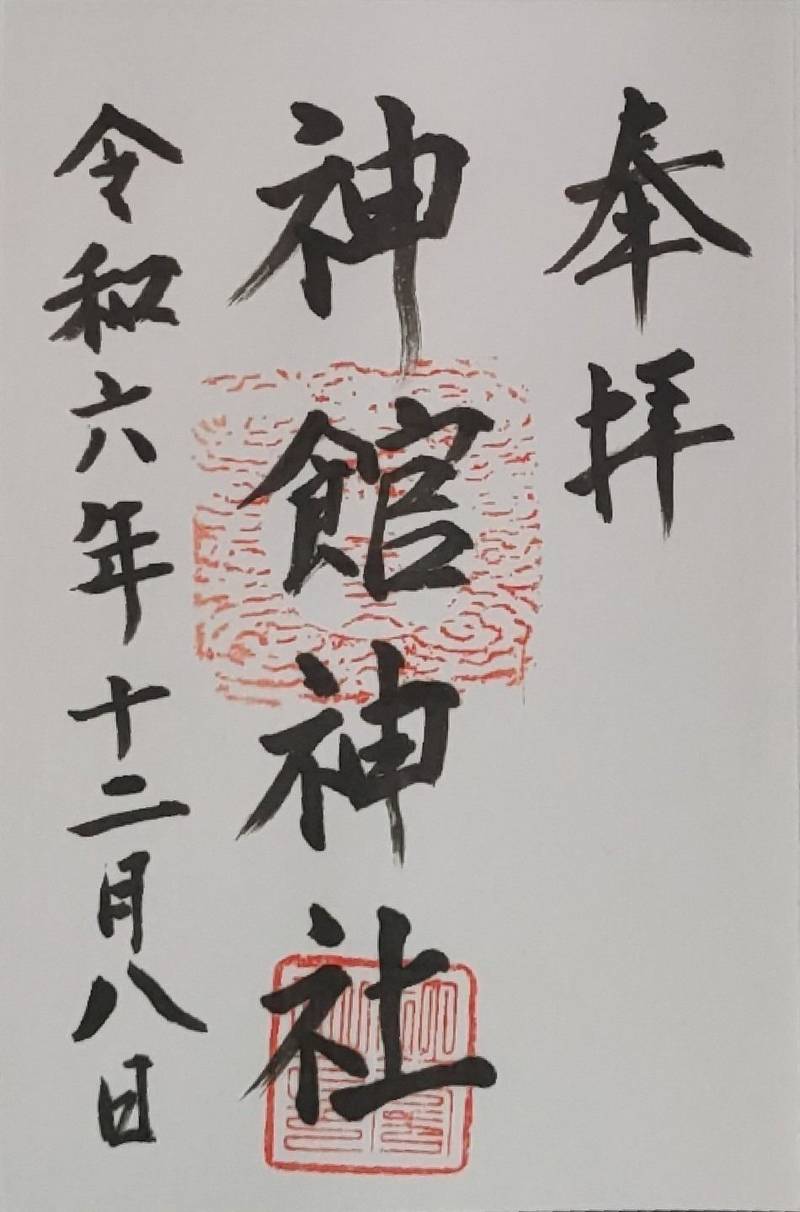 奉拝
神館神社
令和六年十二月八日